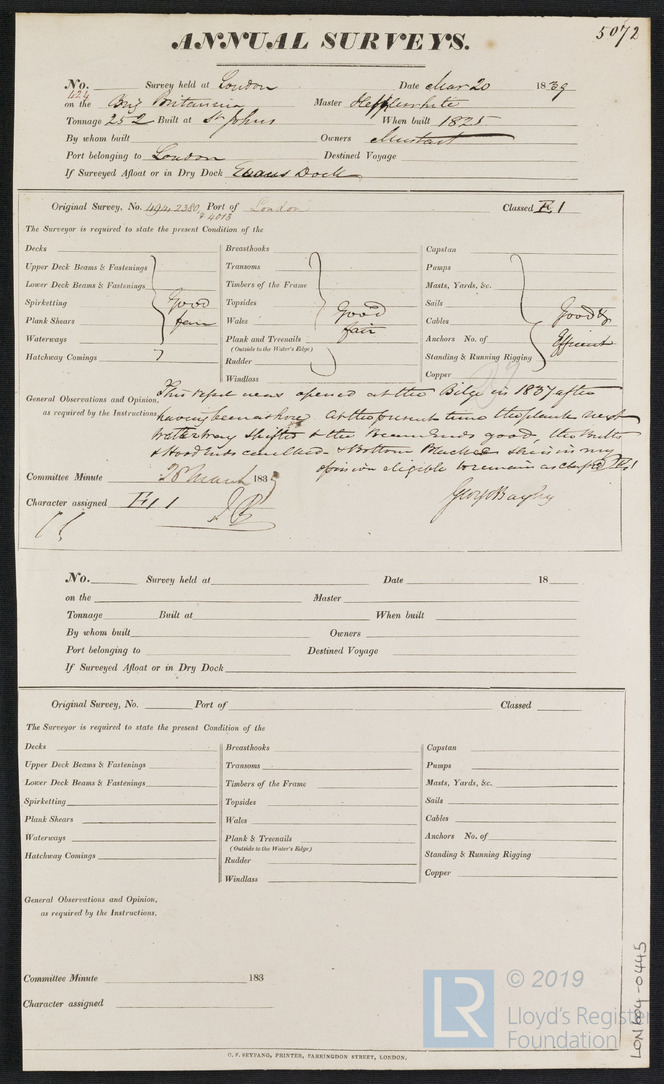 5072
ANNUAL SURVEYS.
No. 424 Survey held at London Date Mar 20 1839
on the Brig Britannia Master Hepplewhite
Tonnage 252 Built at St Johns When built 1825
By whom built Owners
Port belonging to London Destined Voyage
If Surveyed Afloat or in Dry Dock Evans Dock
Original Survey, No. 494. 2380 & 4013 Port of London Classed Æ 1
The Surveyor is required to state the present Condition of the
Decks Breasthooks Capstan
Upper Deck Beams & Fastenings Transoms Pumps
Lower Deck Beams & Fastenings Timbers of the Frame Masts, Yards, &c.
Spirketting Good Topsides Good Sails Good &
Plank Shears fair Wales fair Cables Efficient
Waterways Plank and Treenails Anchors No. of
(Outside to the Water's Edge)
Hatchway Comings Rudder Standing & Running Rigging
Windlass Copper
General Observations and Opinion, This Vessel was opened at the Bilge in 1837 after
as required by the Instructions, having been ashore. At the present time the planks next
Waterway shifted & the Beam Ends good, the Butts
& Hood Ends caulked & Bottom Blacked she is in my
opinion eligible to remain as classed Æ 1
Committee Minute 28 March 1839
Character assigned Æ 1
No. Survey held at Date 18
on the Master
Tonnage Built at When built
By whom built Owners
Port belonging to Destined Voyage
If Surveyed Afloat or in Dry Dock
Original Survey, No. Port of Classed
The Surveyor is required to state the present Condition of the
Decks Breasthooks Capstan
Upper Deck Beams & Fastenings Transoms Pumps
Lower Deck Beams & Fastenings Timbers of the Frame Masts, Yards, &c.
Spirketting Topsides Sails
Plank Shears Wales Cables
Waterways Plank & Treenails Anchors No. of
(Outside to the Water's Edge)
Hatchway Comings Rudder Standing & Running Rigging
Windlass Copper
General Observations and Opinion,
as required by the Instructions.
Committee Minute 183
Character assigned
C. F. SEYFANG, PRINTER, FARRINGDON STREET, LONDON.
LR © 2019
Lloyd's Register
Foundation
LON604-0445